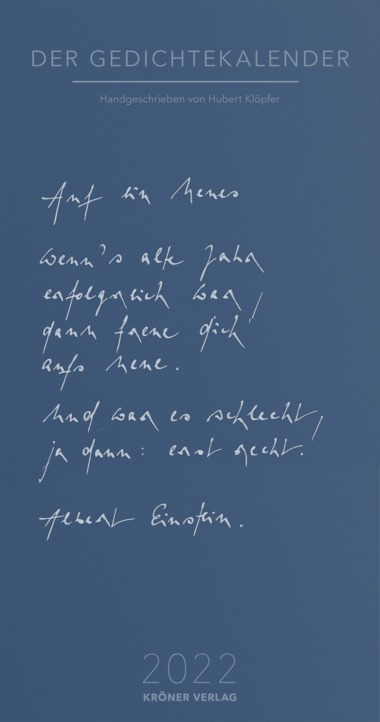 DER GEDICHTEKALENDER
Handgeschrieben von Hubert Klöpfer
Auf ein Neues
wenn's alte Jahr
erfolgreich war,
dann freue dich
aufs neue.
Und war es schlecht,
ja dann: erst recht.
Albert Einstein.
2022
KRÖNER VERLAG